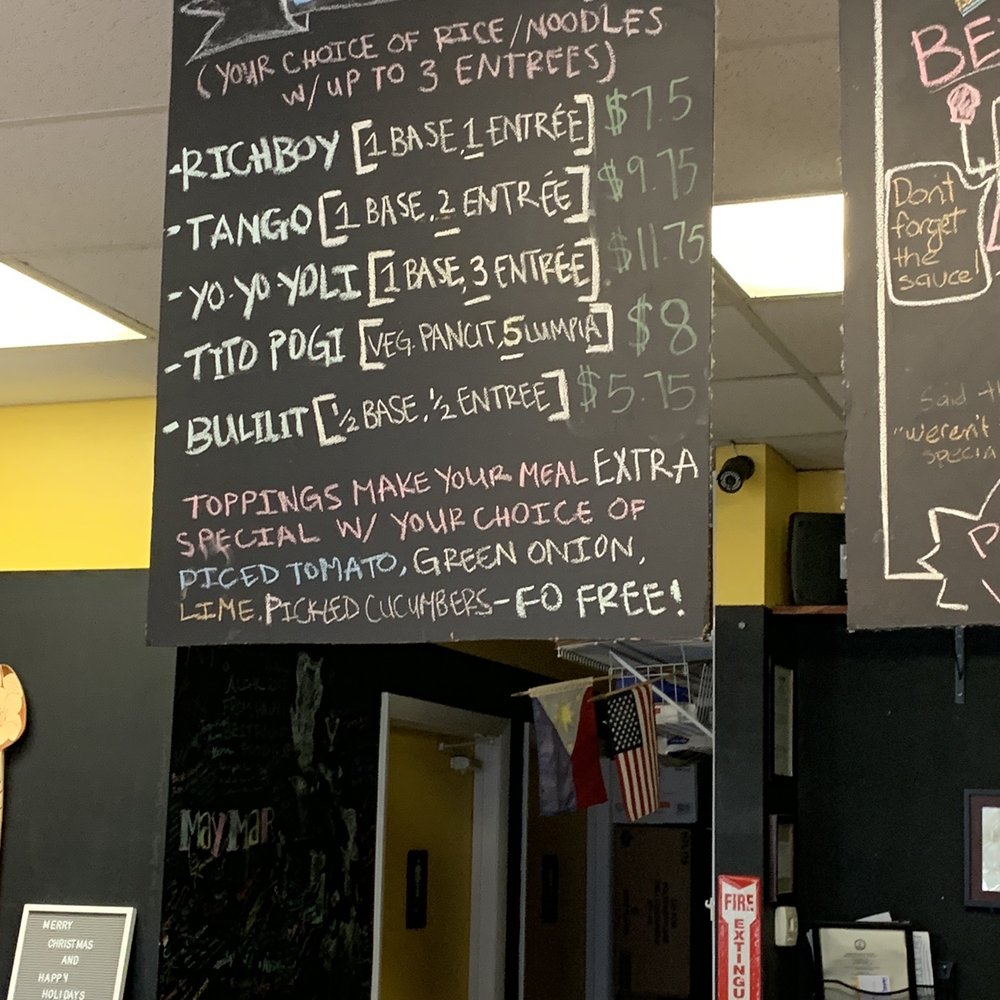 (YOUR CHOICE OF RICE/NOODLES
W/UP TO 3 ENTREES)
-RICHBOY [1 BASE, 1 ENTRÉE] $7.5
-TANGO [1 BASE, 2 ENTRÉE] $9.75
-YO-YO-YOLI [1 BASE, 3 ENTRÉE] $11.75
-TITO POGI [VEG. PANCIT, 5 LUMPIA] $8
-BULILIT [½ BASE, ½ ENTREE] $5.75
TOPPINGS MAKE YOUR MEAL EXTRA
SPECIAL W/ YOUR CHOICE OF
DICED TOMATO, GREEN ONION,
LIME, PICKLED CUCUMBERS-FO FREE!
BE
Don't
forget
the
sauce!
Said
"weren't
specia
MayMar
MERRY
CHRISTMAS
AND
HAPPY
HOLIDAYS
FIRE
EXTINGU